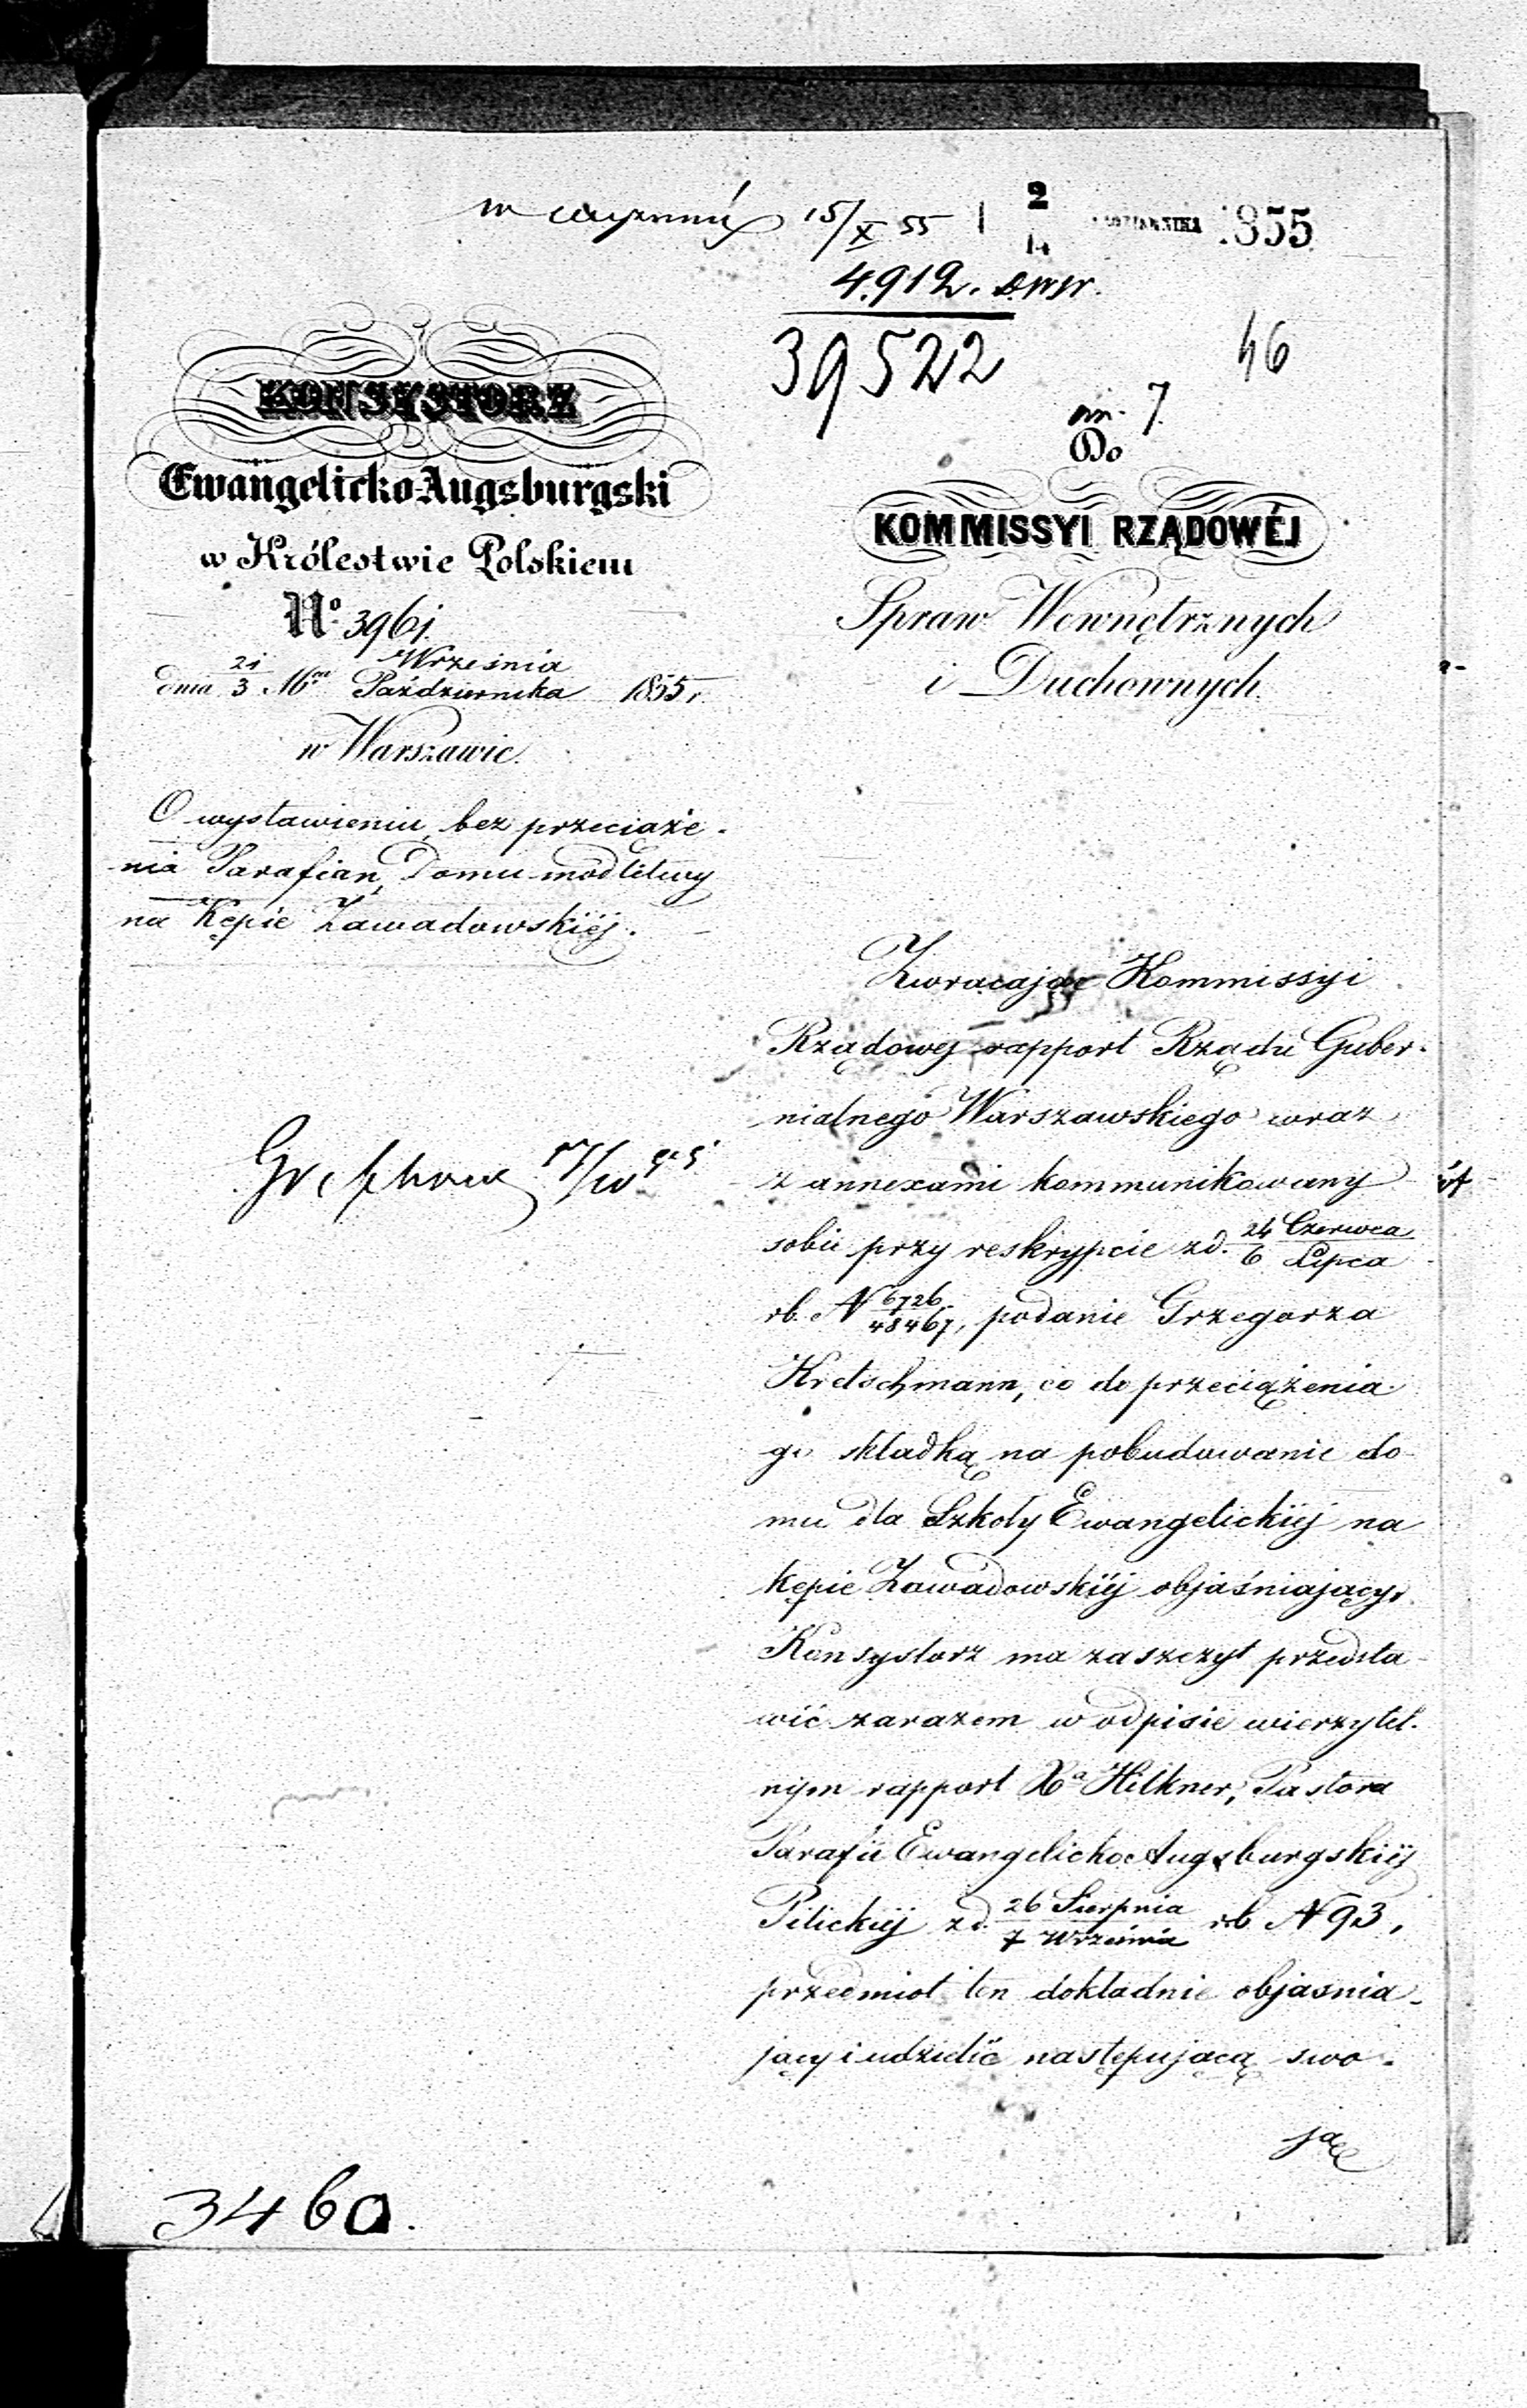 15/X 55
2
14
PAŹDZIERNIKA 1855
4912.
39522
46
7.
KONSYSTORZ
Ewangelicko-Augsburgski
w Królestwie Polskiem
No. 3961.
dnia 21/3 Mca Września/Października 1855 r.
w Warszawie.
O wystawieniu, bez przeciąże-
nia Parafian, Domu modlitwy
na Kępie Zawadowskiéj.
3460.
Do
KOMMISSYI RZĄDOWÉJ
Spraw Wewnętrznych
i Duchownych.
Zwracając Kommissyi
Rządowej rapport Rządu Guber-
nialnego Warszawskiego wraz
z annexami kommunikowany
sobie przy reskrypcie z d. 24 Czerwca/6 Lipca
rb. N 6726/48467, podanie Grzegorza
Kretschmann, co do przeciążenia
go składką na pobudowanie do-
mu dla Szkoły Ewangelickiéj na
kępie Zawadowskiéj objaśniający,
Konsystorz ma zaszczyt przedsta-
wić zarazem w odpisie wierzytel-
nym rapport Xa Hilkner, Pastora
Parafii Ewangelicko Augsburgskiéj
Pilickiéj z d. 26 Sierpnia/7 Września rb N 93,
przedmiot ten dokładnie objasnia-
jący i udzielić następującą swo-
ją